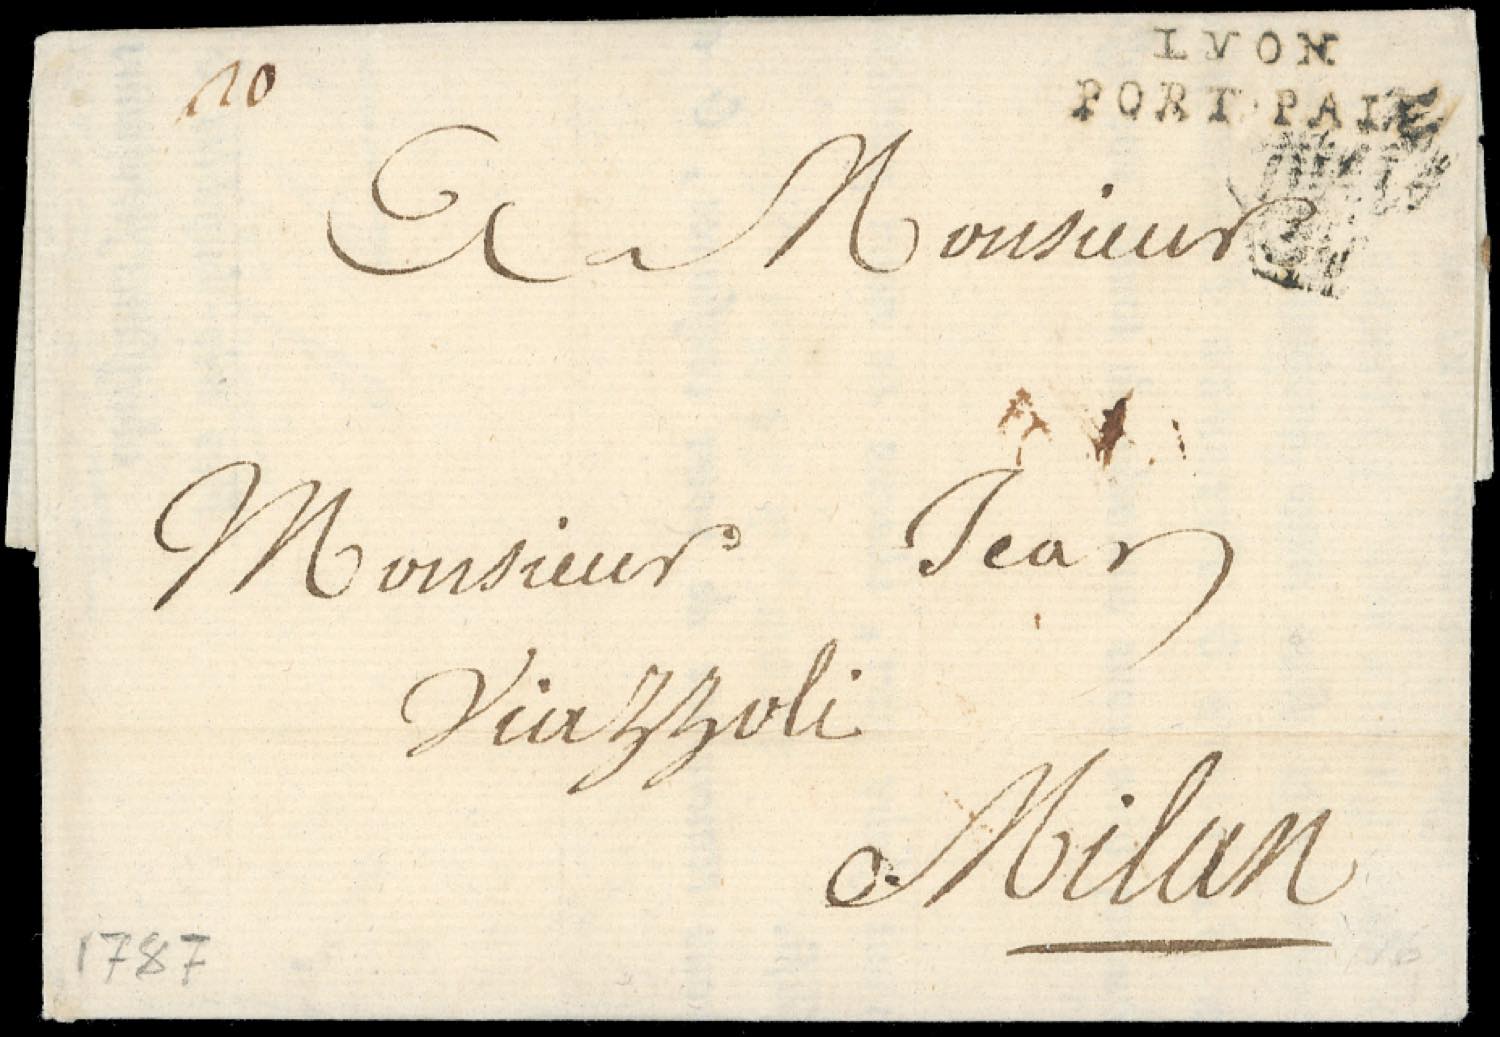 LYON
PORT·PAIÉ
A Monsieur
Monsieur Jean
Viazzoli
a Milan
1787